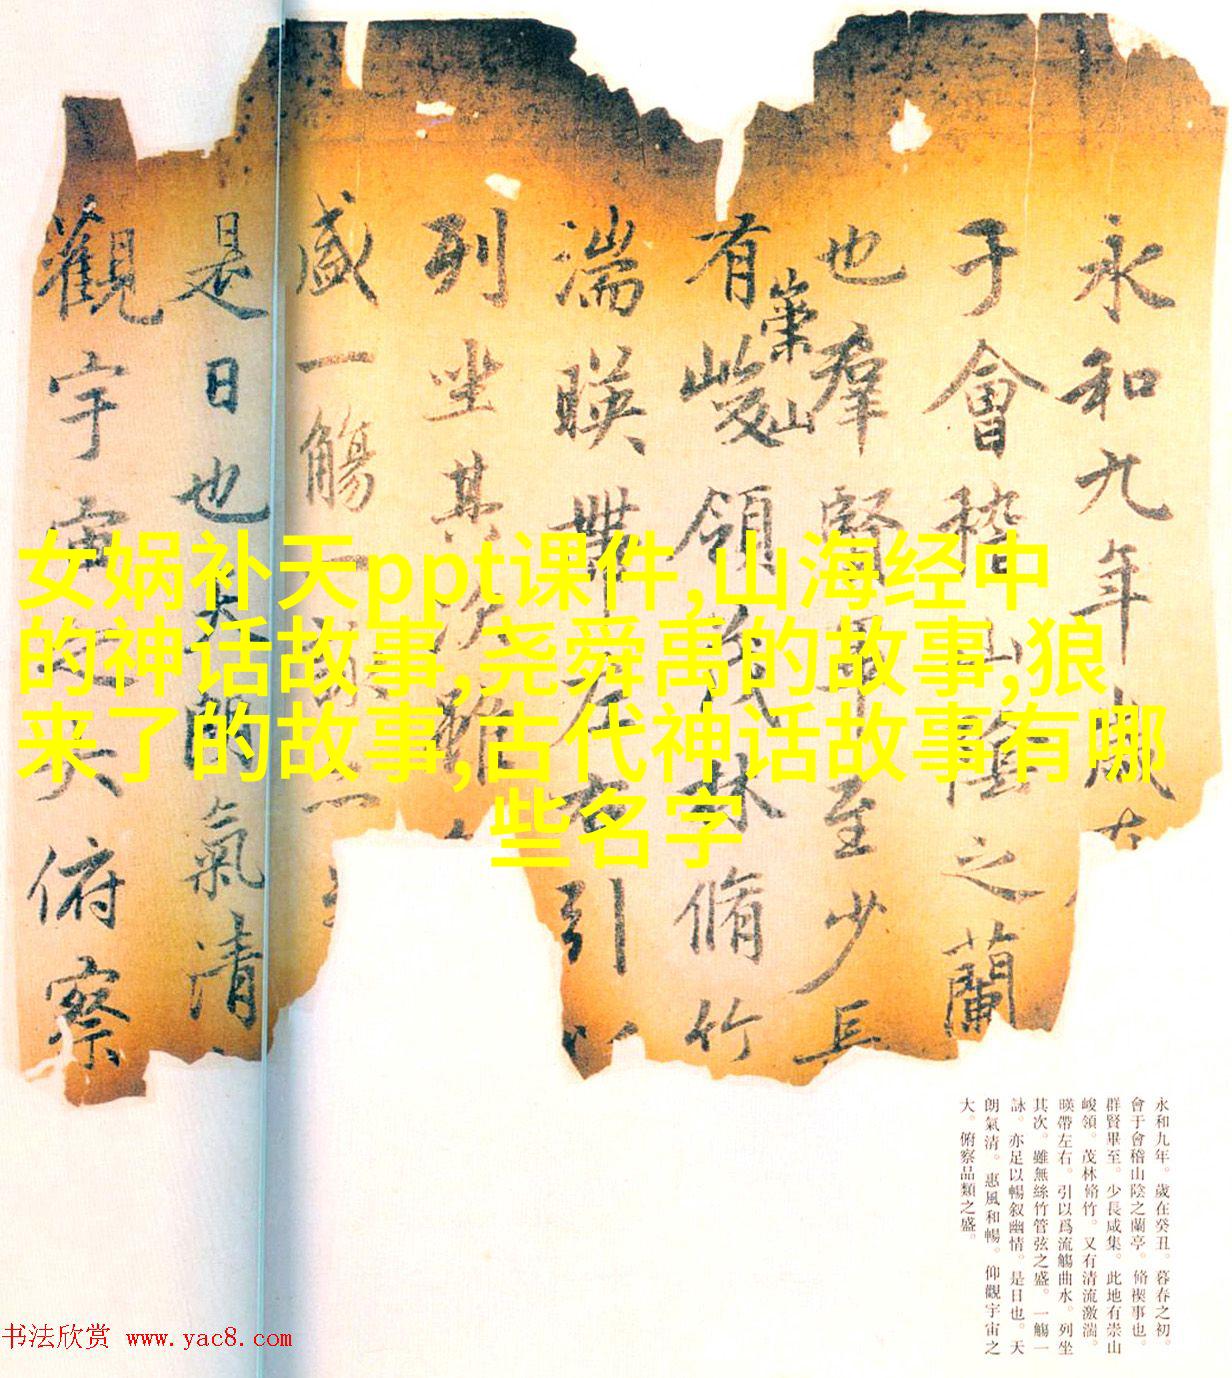 永和九年歲在
于會稽山陰之蘭
也羣賢畢至少長
有崇山峻領茂林脩竹
湍暎帶左右引以
列坐其次雖
盛一觴一詠
是日也天朗氣清
觀宇宙之大俯察
女娲补天ppt课件,山海经中
的神话故事,尧舜禹的故事,狼
来了的故事,古代神话故事有哪
些名字
永和九年。歲在癸丑。暮春之初。
會于會稽山陰之蘭亭。脩禊事也。
群賢畢至。少長咸集。此地有崇山
峻領。茂林脩竹。又有清流激湍。
暎帶左右。引以爲流觴曲水。列坐
其次。雖無絲竹管弦之盛。一觴一
詠。亦足以暢叙幽情。是日也。天
朗氣清。惠風和暢。仰觀宇宙之
大。俯察品類之盛。
书法欣赏 www.yac8.com